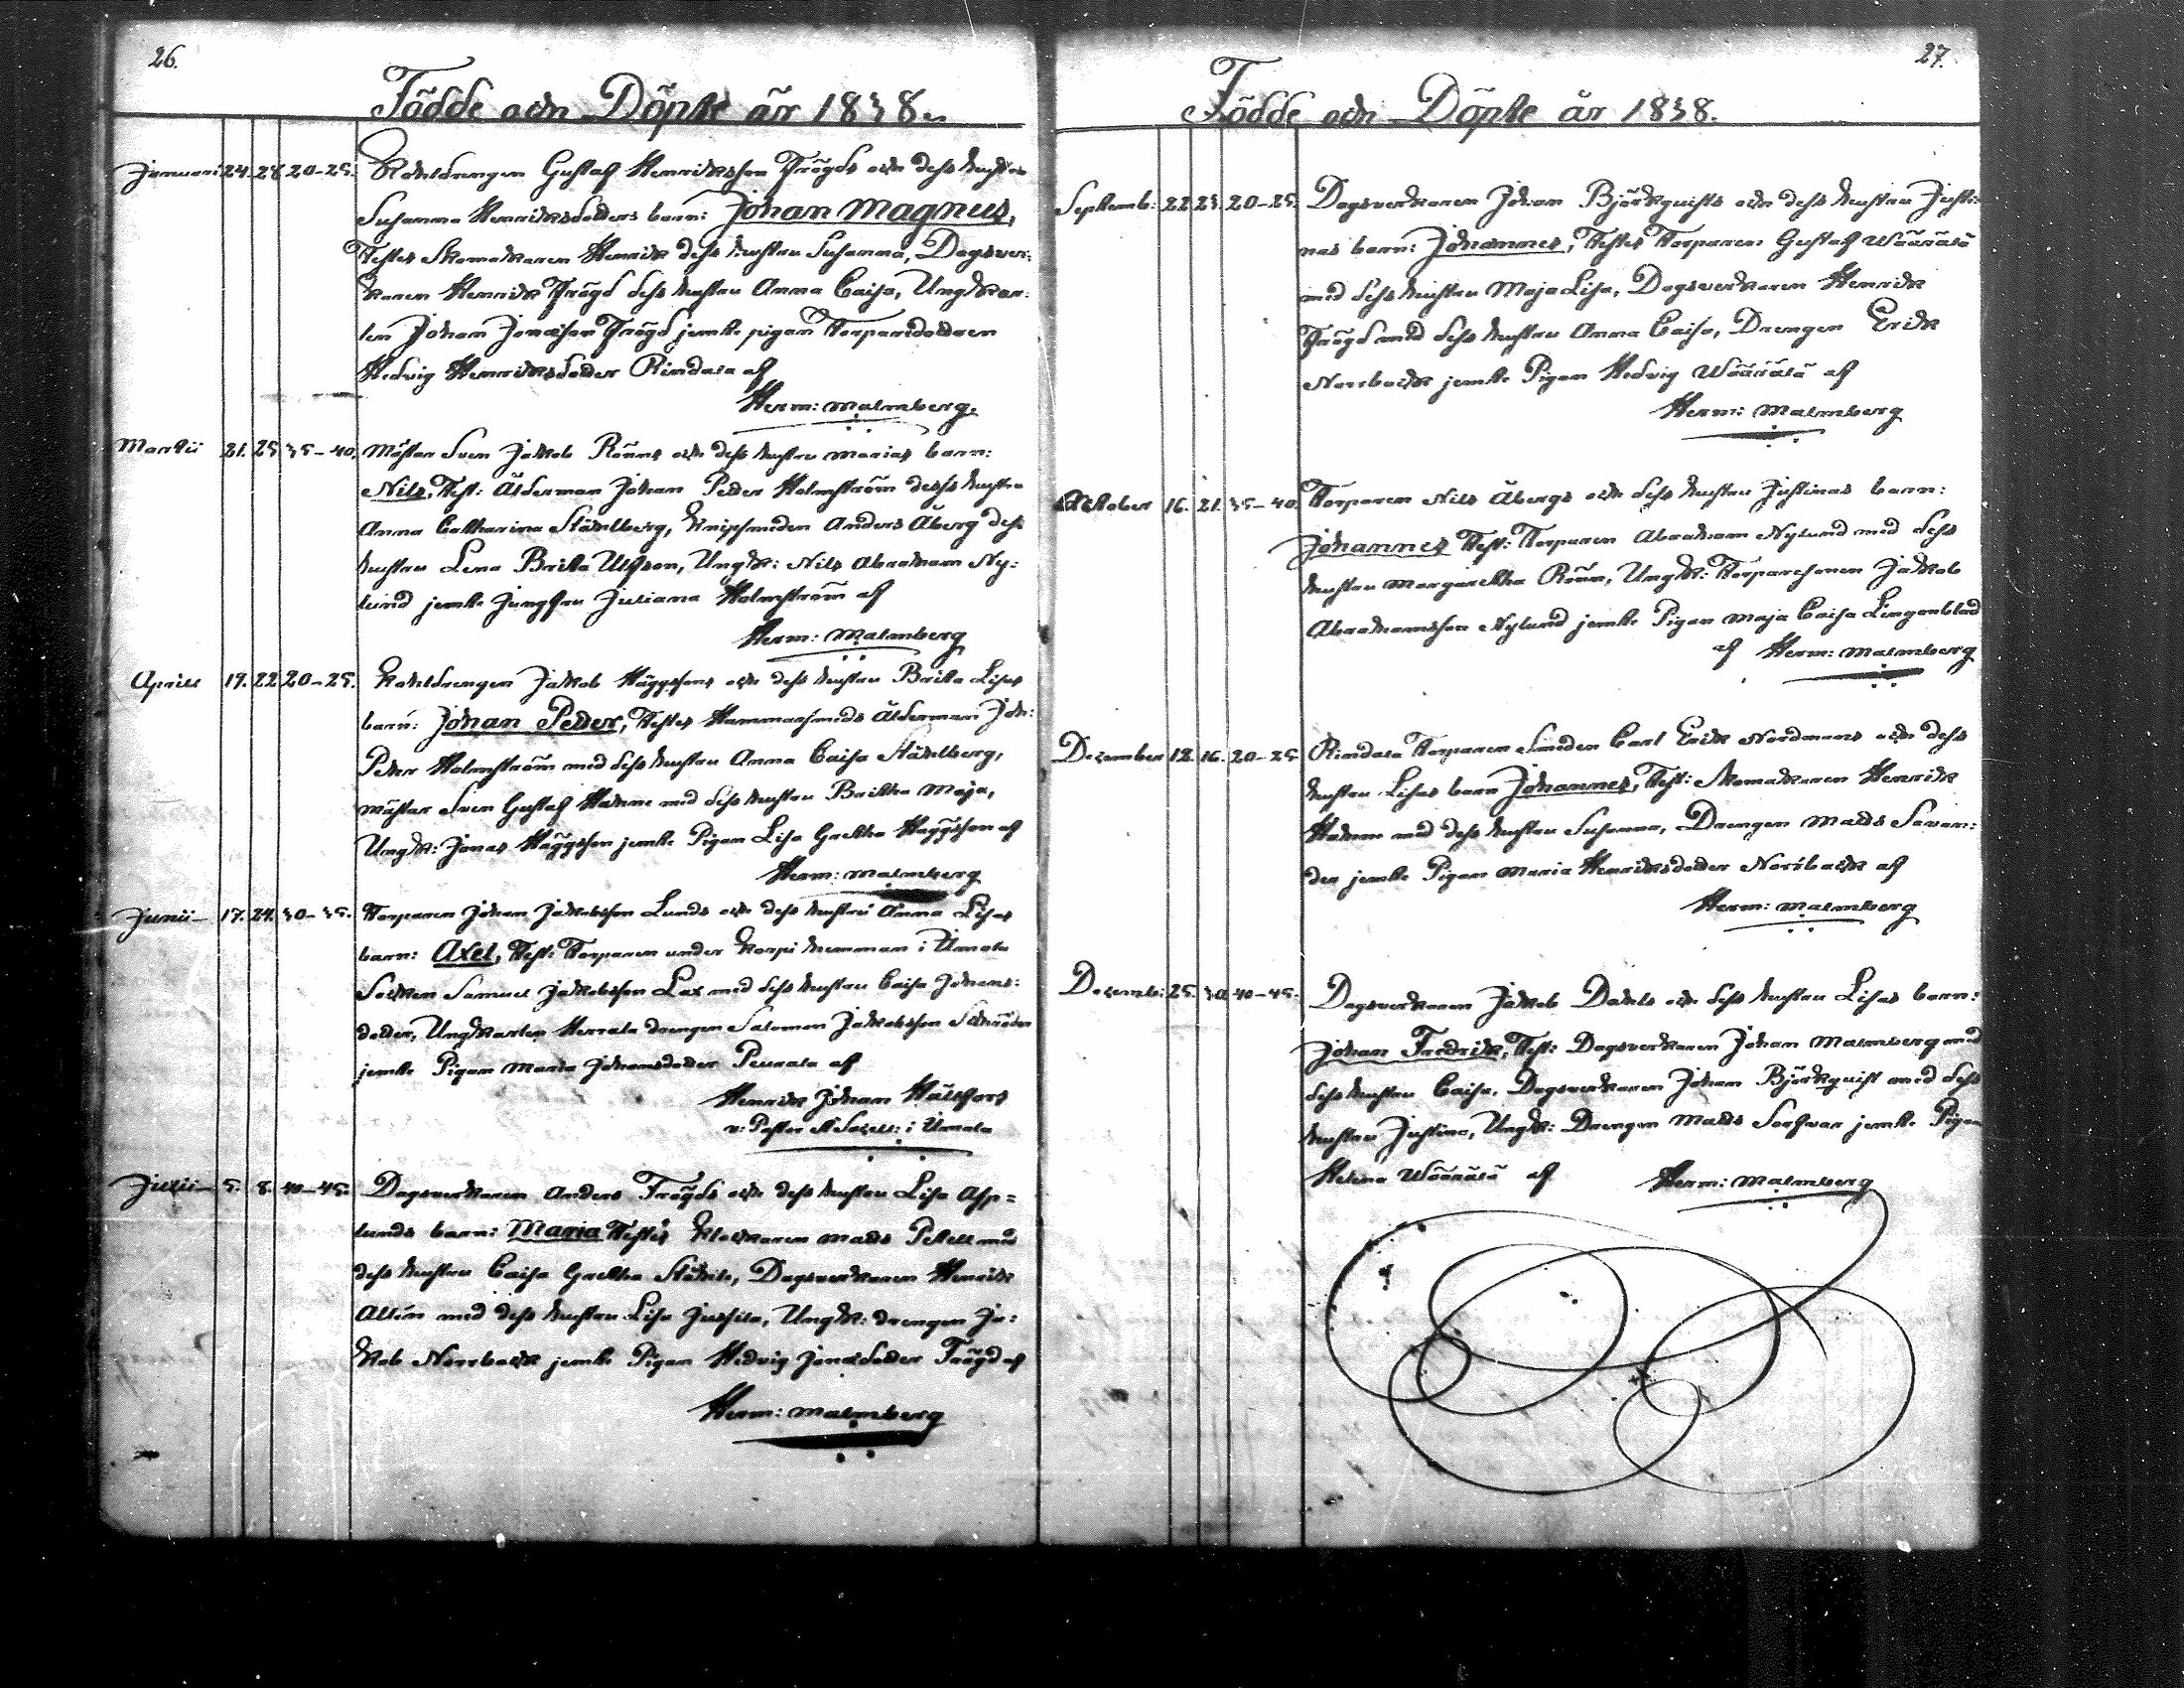 26.
Födde och Döpte år 1838.
Januari 24. 28. 20-25. Kohldrengen Gustaf Henriksson Frögds och dess hustru
Susanna Henriksdotters barn: Johan Magnus,
Testes Skomakaren Henrik dess hustru Susanna, Dagsver-
karen Henrik Frögd dess hustru Anna Caisa, Ungkar-
len Johan Jonasson Frögd jemte pigan Torparedottren
Hedvig Henriksdotter Rindala af
Herm: Malmberg.
Martii 21. 25. 35-40. Mäster Sven Jakob Rönns och dess hustru Marias barn:
Nils, Test: Ålderman Johan Petter Holmström dess hustru
Anna Catharina Ståhlberg, Knipsmeden Anders Åberg dess
hustru Lena Britta Ulfson, Ungk: Nils Abraham Ny-
lund jemte Jungfru Juliana Holmström af
Herm: Malmberg
Aprill 19. 22. 20-25. Kohldrengen Jakob Häggsons och dess hustru Britta Lisas
barn: Johan Petter, Testes Hammarsmeds Ålderman Joh:
Peter Holmström med dess hustru Anna Caisa Ståhlberg,
mäster Sven Gustaf Hahne med dess hustru Britha Maja,
Ungk: Jonas Häggson jemte Pigan Lisa Gretha Häggson af
Herm: Malmberg
Junii 17. 24. 30-35. Torparen Johan Jakobsson Lunds och dess hustru Anna Lisas
barn: Axel, Test: Torparen under Korpi hemman i Ilmola
Socken Samuel Jakobsson Lax med dess hustru Caisa Johans-
dotter, Ungkarlen Herrala drengen Salomon Jakobsson
jemte Pigan Maria Johansdotter Peurala af
Henrik Johan Hällfors
v: Pastor i Ilmola
Julii 5. 8. 40-45. Dagsverkaren Anders Frögds och dess hustru Lisa Asp-
lunds barn: Maria Testes Klockaren Matts Petell med
dess hustru Caisa Gretha Ståhls, Dagsverkaren Henrik
Altin med dess hustru Lisa Jussila, Ungk: drengen Ja-
kob Norrback jemte Pigan Hedvig Jonædotter Frögd af
Herm: Malmberg
27.
Födde och Döpte år 1838.
Septemb: 22. 23. 20-25. Dagsverkaren Johan Björkquists och dess hustru Justi-
nas barn: Johannes, Testes Torparen Gustaf Wäärälä
med dess hustru Maja Lisa, Dagsverkaren Henrik
Frögd med dess hustru Anna Caisa, Drengen Erik
Norrback jemte Pigan Hedvig Wäärälä af
Herm: Malmberg
Oktober 16. 21. 35-40. Torparen Nils Åbergs och dess hustru Justinas barn:
Johannes Test: Torparen Abraham Nylund med dess
hustru Margaretha Rönn, Ungk: Torparesonen Jakob
Abrahamsson Nylund jemte Pigan Maja Caisa Lingonblad
af Herm: Malmberg
December 12. 16. 20-25. Rindala Torparen Smeden Carl Erik Nordmans och dess
hustru Lisas barn Johannes, Test: Skomakaren Henrik
Hahne med dess hustru Susanna, Drengen Matts Savan-
der jemte Pigan Maria Henriksdotter Norrback af
Herm: Malmberg
Decemb: 25. 30. 40-45. Dagsverkaren Jakob Dahls och dess hustru Lisas barn:
Johan Fredrik, Test: Dagsverkaren Johan Malmberg med
dess hustru Caisa, Dagsverkaren Johan Björkquist med dess
hustru Justina, Ungk: Drengen Matts Sorfvar jemte Pigan
Helena Wäärälä af Herm: Malmberg